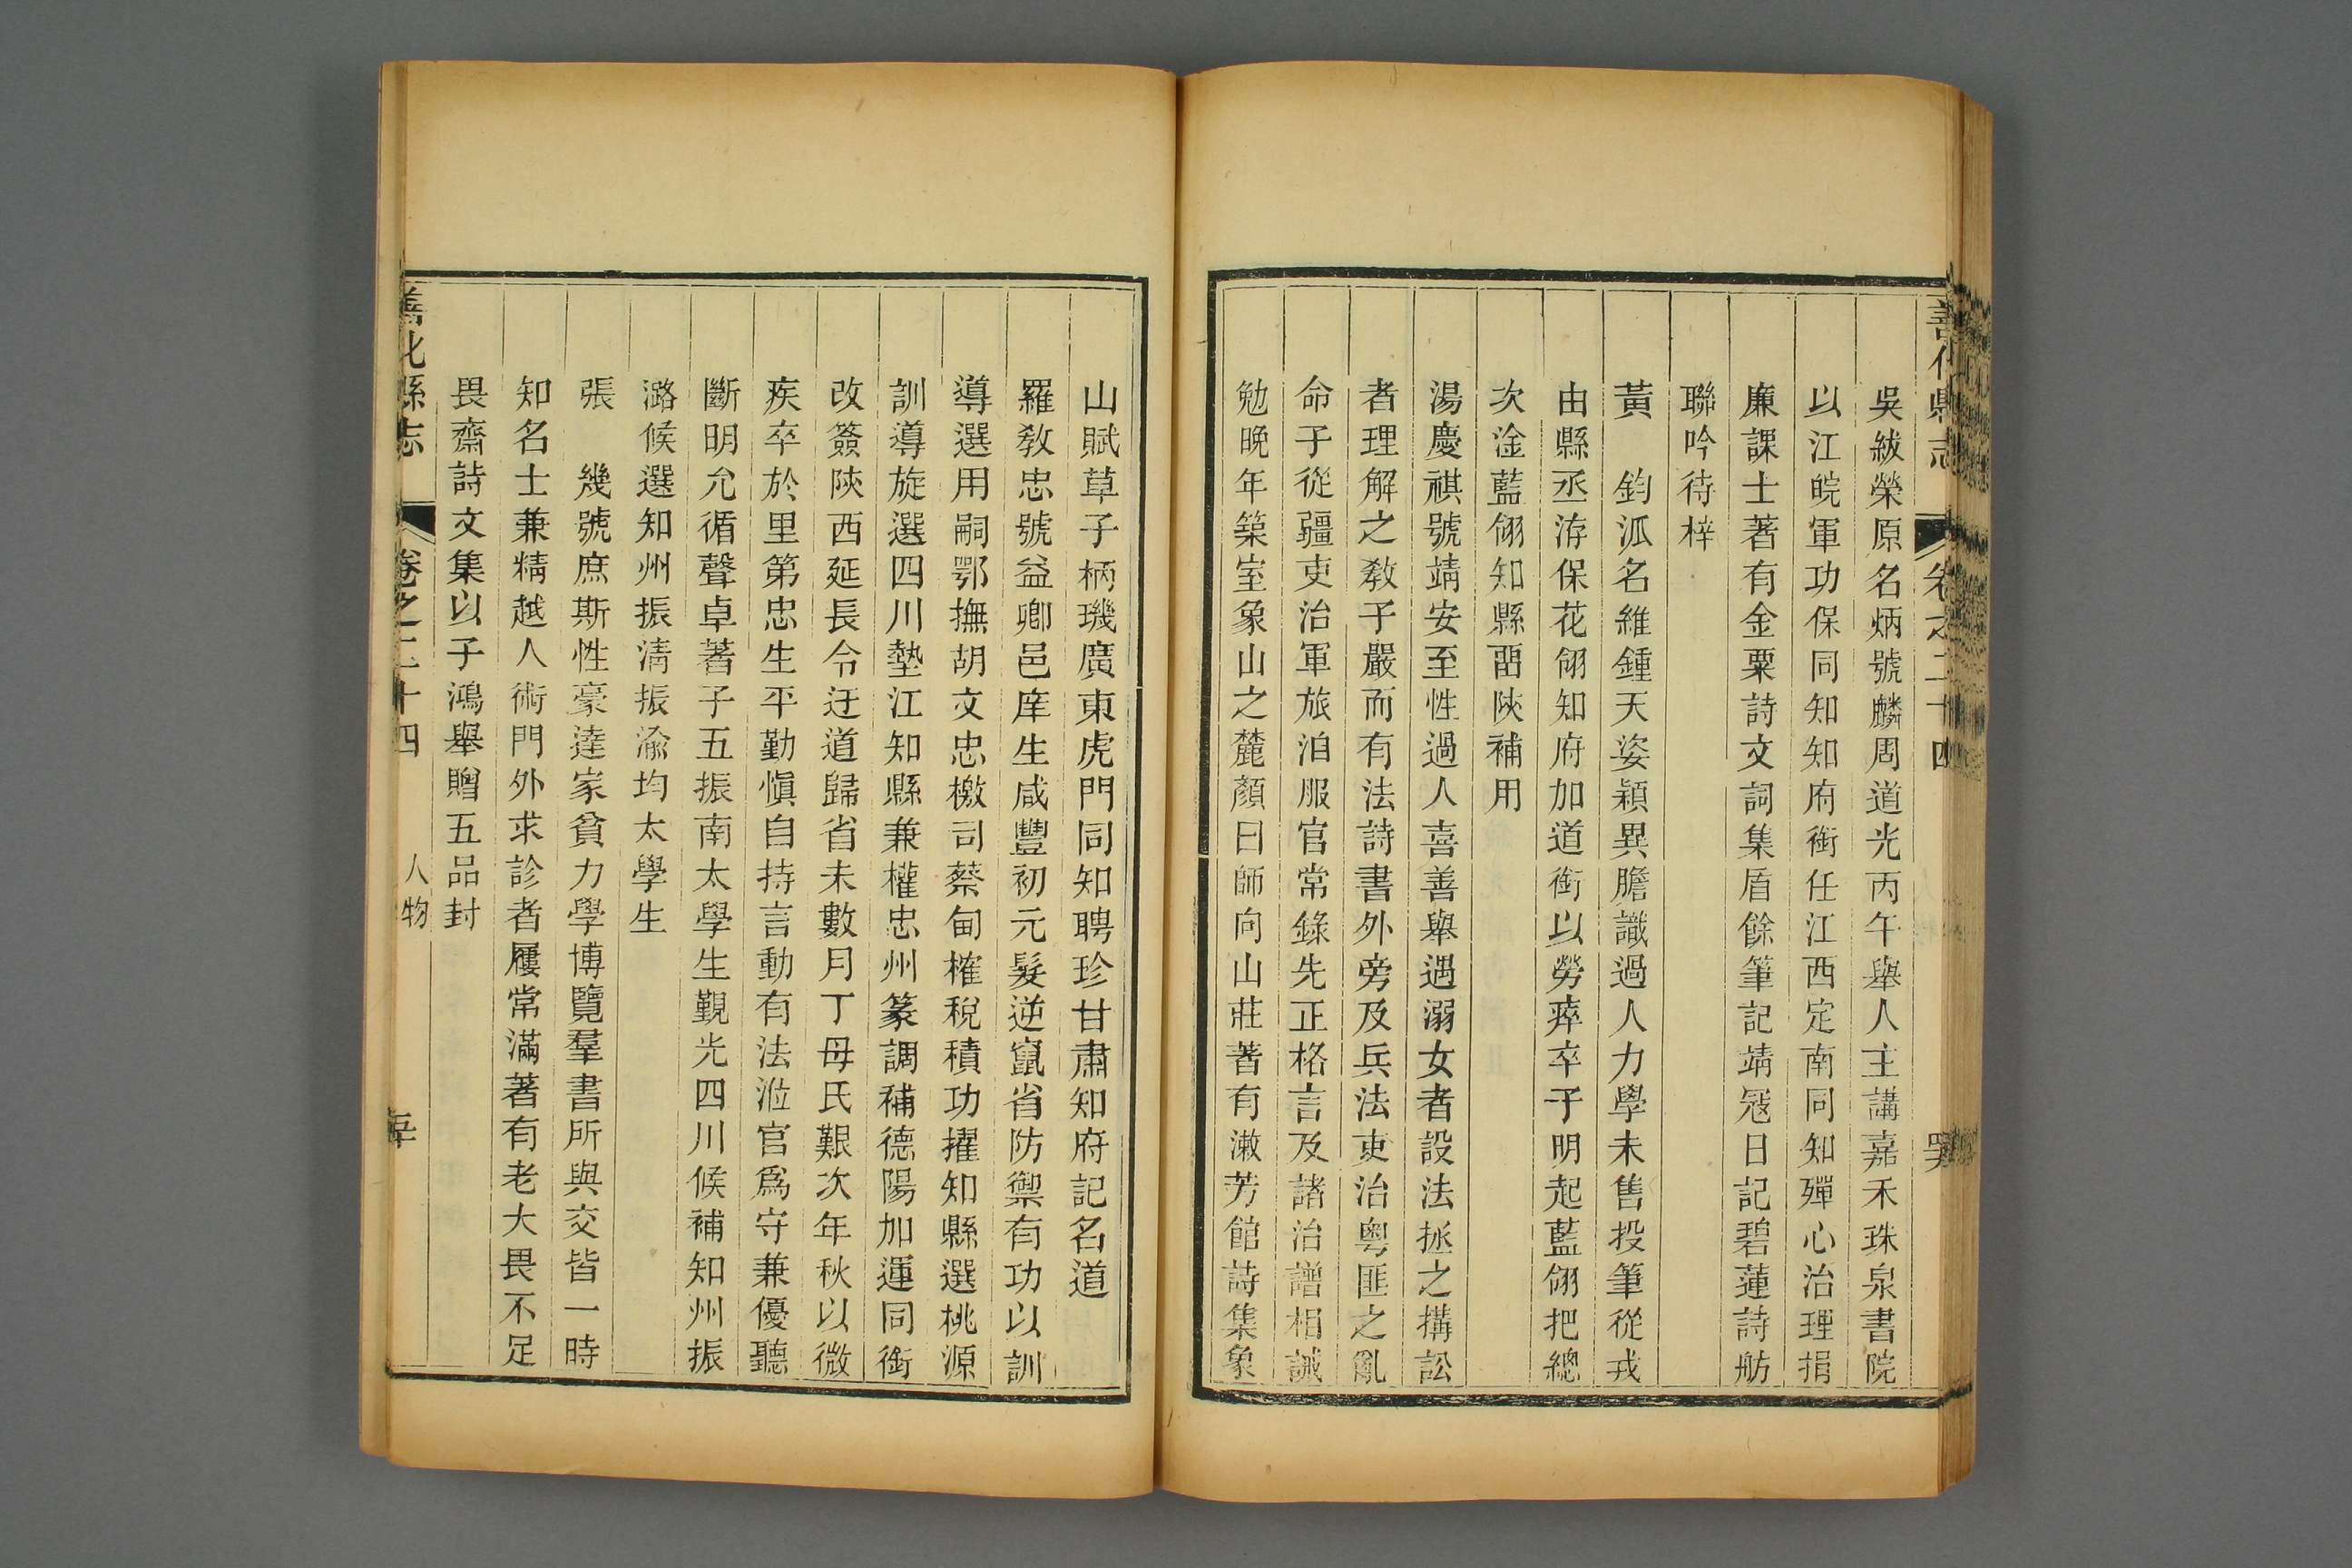 善化縣志 卷之二十四
吳紱榮原名炳號麟周道光丙午舉人主講嘉禾珠泉書院
以江皖軍功保同知知府銜任江西定南同知殫心治理捐
廉課士著有金粟詩文詞集盾餘筆記靖冦日記碧蓮詩舫
聯吟待梓
黃 鈞派名維鍾天姿穎異膽識過人力學未售投筆從戎
由縣丞洊保花翎知府加道銜以勞瘁卒子明起藍翎把總
次淦藍翎知縣畱陝補用
湯慶祺號靖安至性過人喜善舉遇溺女者設法拯之搆訟
者理解之教子嚴而有法詩書外旁及兵法吏治粵匪之亂
命子從疆吏治軍旅洎服官常錄先正格言及諸治譜相誡
勉晚年築室象山之麓顏曰師向山莊著有漱芳館詩集象
山賦草子柄璣廣東虎門同知聘珍甘肅知府記名道
羅教忠號益卿邑庠生咸豐初元髮逆竄省防禦有功以訓
導選用嗣鄂撫胡文忠檄司蔡甸榷稅積功擢知縣選桃源
訓導旋選四川墊江知縣兼權忠州篆調補德陽加運同銜
改簽陝西延長令迂道歸省未數月丁母氏艱次年秋以微
疾卒於里第忠生平勤慎自持言動有法涖官爲守兼優聽
斷明允循聲卓著子五振南太學生觀光四川候補知州振
潞候選知州振淸振渝均太學生
張 幾號庶斯性豪達家貧力學博覽羣書所與交皆一時
知名士兼精越人術門外求診者屨常滿著有老大畏不足
畏齋詩文集以子鴻舉贈五品封
善化縣志 卷之二十四 人物